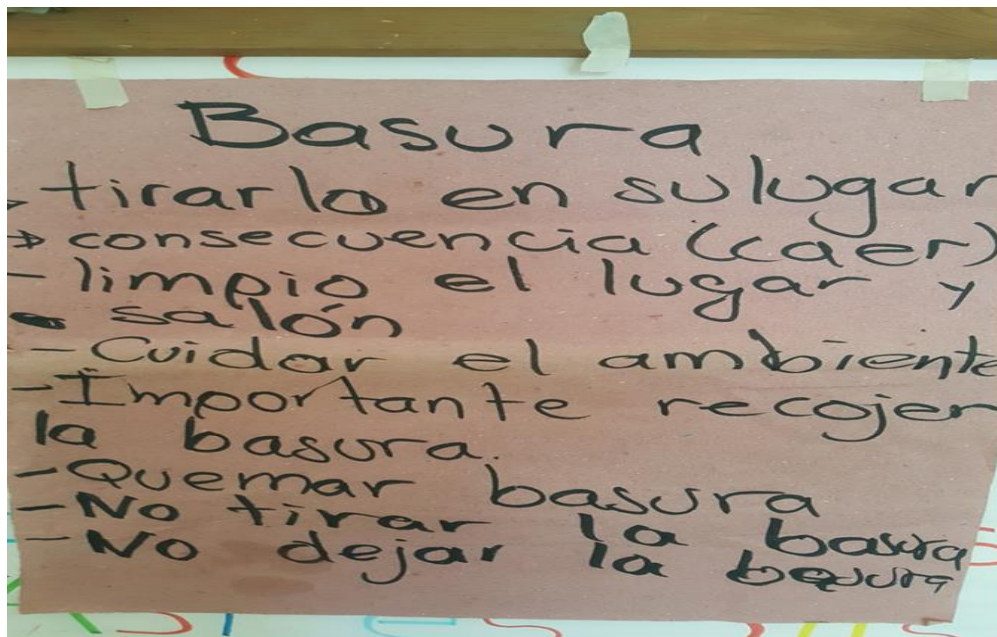 Basura
- tirarlo en su lugar
→ consecuencia (caer)
- limpio el lugar y
salón
- Cuidar el ambiente
- Importante recojer
la basura.
- Quemar basura
- No tirar la basura
- No dejar la basura